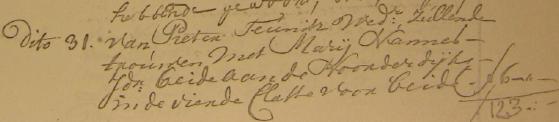 hebbende gewoont
Dito 31. van Pieter Teunitz Wedr. zullende
trouwen met Marij Hannes
Jdr. beide aan de Noorderdijk
in de vierde Classe voor beide f 6-"-
123-"-